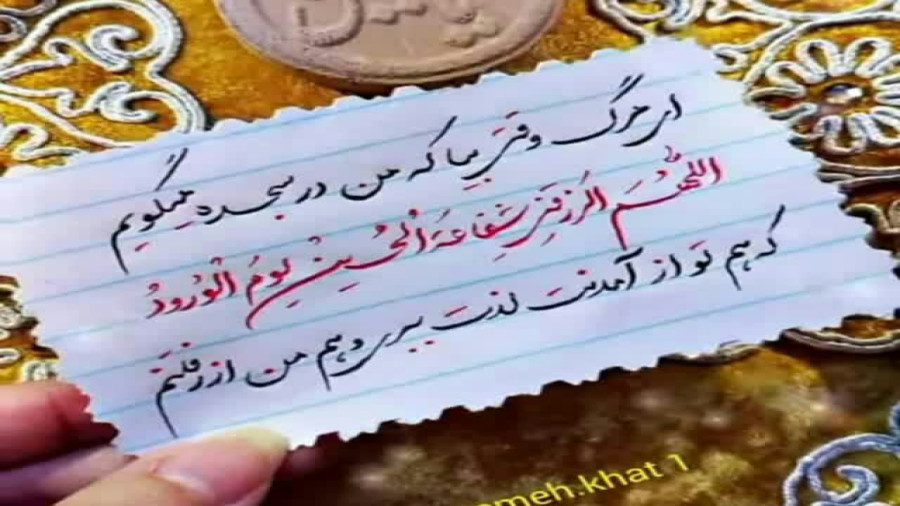 ای مرگ وقتی بیا که من در سجده میگویم
اللهُمَ الرزقنی شِفاعَة الْحُسِینِ یَومَ الْوُرودُ
که هم تو از آمدنت لذت ببری و هم من از رفتنم
omeh.khat 1